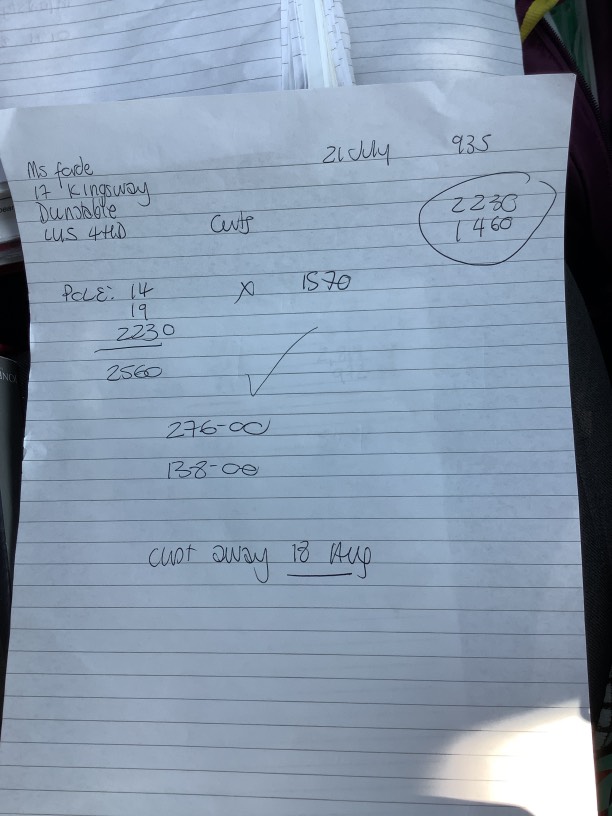 21 July 935
Ms forde
17 Kingsway
Dunstable
LU5 4HD
Curts
2230
1460
POLE: 14 X 1570
19
2230
2560
276-00
138-00
cust away 18 Aug